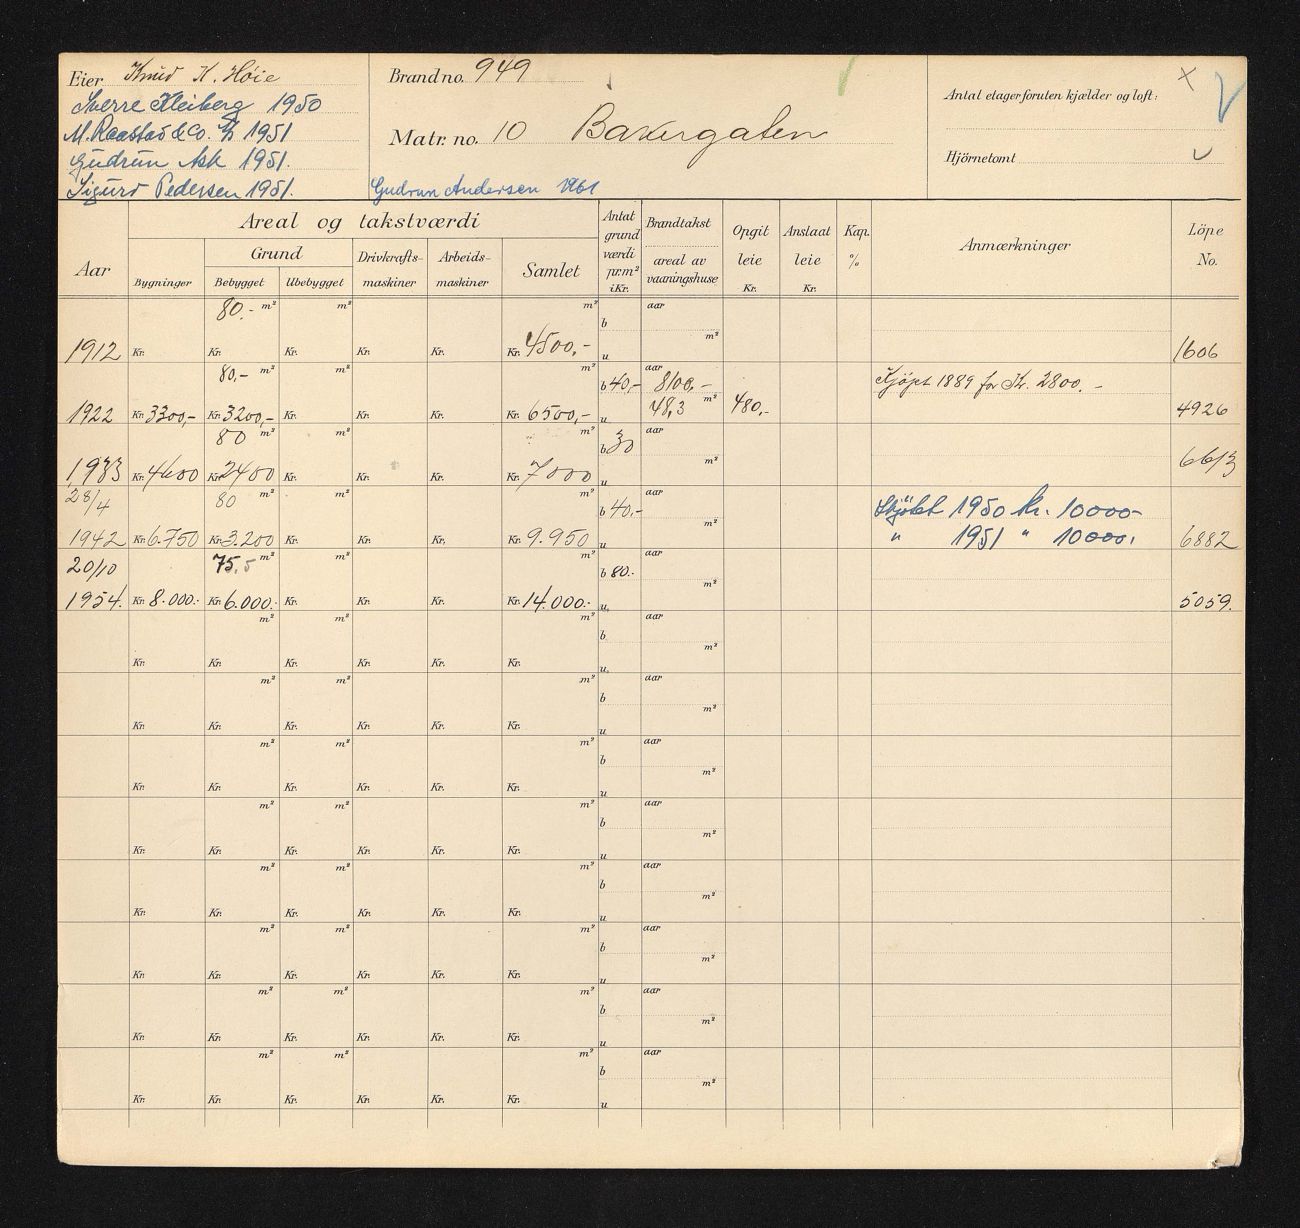 Eier Knud K. Høie
Sverre Kleiberg 1950
M. Raastad & Co. 1951
Gudrun Ask 1951.
Sigurd Pedersen 1951.
Brand no. 949
Matr. no. 10 Bakergaten
Gudrun Andersen 1961
Antal etager foruten kjælder og loft:
Hjörnetomt
Aar
Areal og takstværdi
Bygninger
Grund
Bebygget Ubebygget
Drivkrafts-
maskiner
Arbeids-
maskiner
Samlet
Antat
grund
værdi
pr.m²
i Kr.
Brandtakst
areal av
vaaningshuse
Opgit
leie
Kr.
Anslaat
leie
Kr.
Kap.
%
Anmærkninger
Löpe
No.
80.- m² m² m² aar
b
m²
1912 Kr. Kr. Kr. Kr. Kr. Kr. 4500,- u 1606
80,- m² m² m² b 40,- aar 8100,- Kjöpt 1889 for Kr. 2800.-
1922 Kr. 3300,- Kr. 3200,- Kr. Kr. Kr. Kr. 6500,- u 48,3 m² 480,- 4926
80 m² m² m² b 30 aar
m²
1933 Kr. 4600 Kr. 2400 Kr. Kr. Kr. Kr. 7000 u 6613
28/4 80 m² m² m² b 40,- aar Skjötet 1950 kr. 10000-
m²
1942 Kr. 6.750 Kr. 3.200 Kr. Kr. Kr. Kr. 9.950 u " 1951 " 10000. 6882
20/10 75,5 m² m² m² b 80.- aar
m²
1954. Kr. 8.000.- Kr. 6.000.- Kr. Kr. Kr. Kr. 14.000.- u 5059.
m² m² m² aar
b
m²
Kr. Kr. Kr. Kr. Kr. Kr. u
m² m² m² aar
b
m²
Kr. Kr. Kr. Kr. Kr. Kr. u
m² m² m² aar
b
m²
Kr. Kr. Kr. Kr. Kr. Kr. u
m² m² m² aar
b
m²
Kr. Kr. Kr. Kr. Kr. Kr. u
m² m² m² aar
b
m²
Kr. Kr. Kr. Kr. Kr. Kr. u
m² m² m² aar
b
m²
Kr. Kr. Kr. Kr. Kr. Kr. u
m² m² m² aar
b
m²
Kr. Kr. Kr. Kr. Kr. Kr. u
m² m² m² aar
b
m²
Kr. Kr. Kr. Kr. Kr. Kr. u